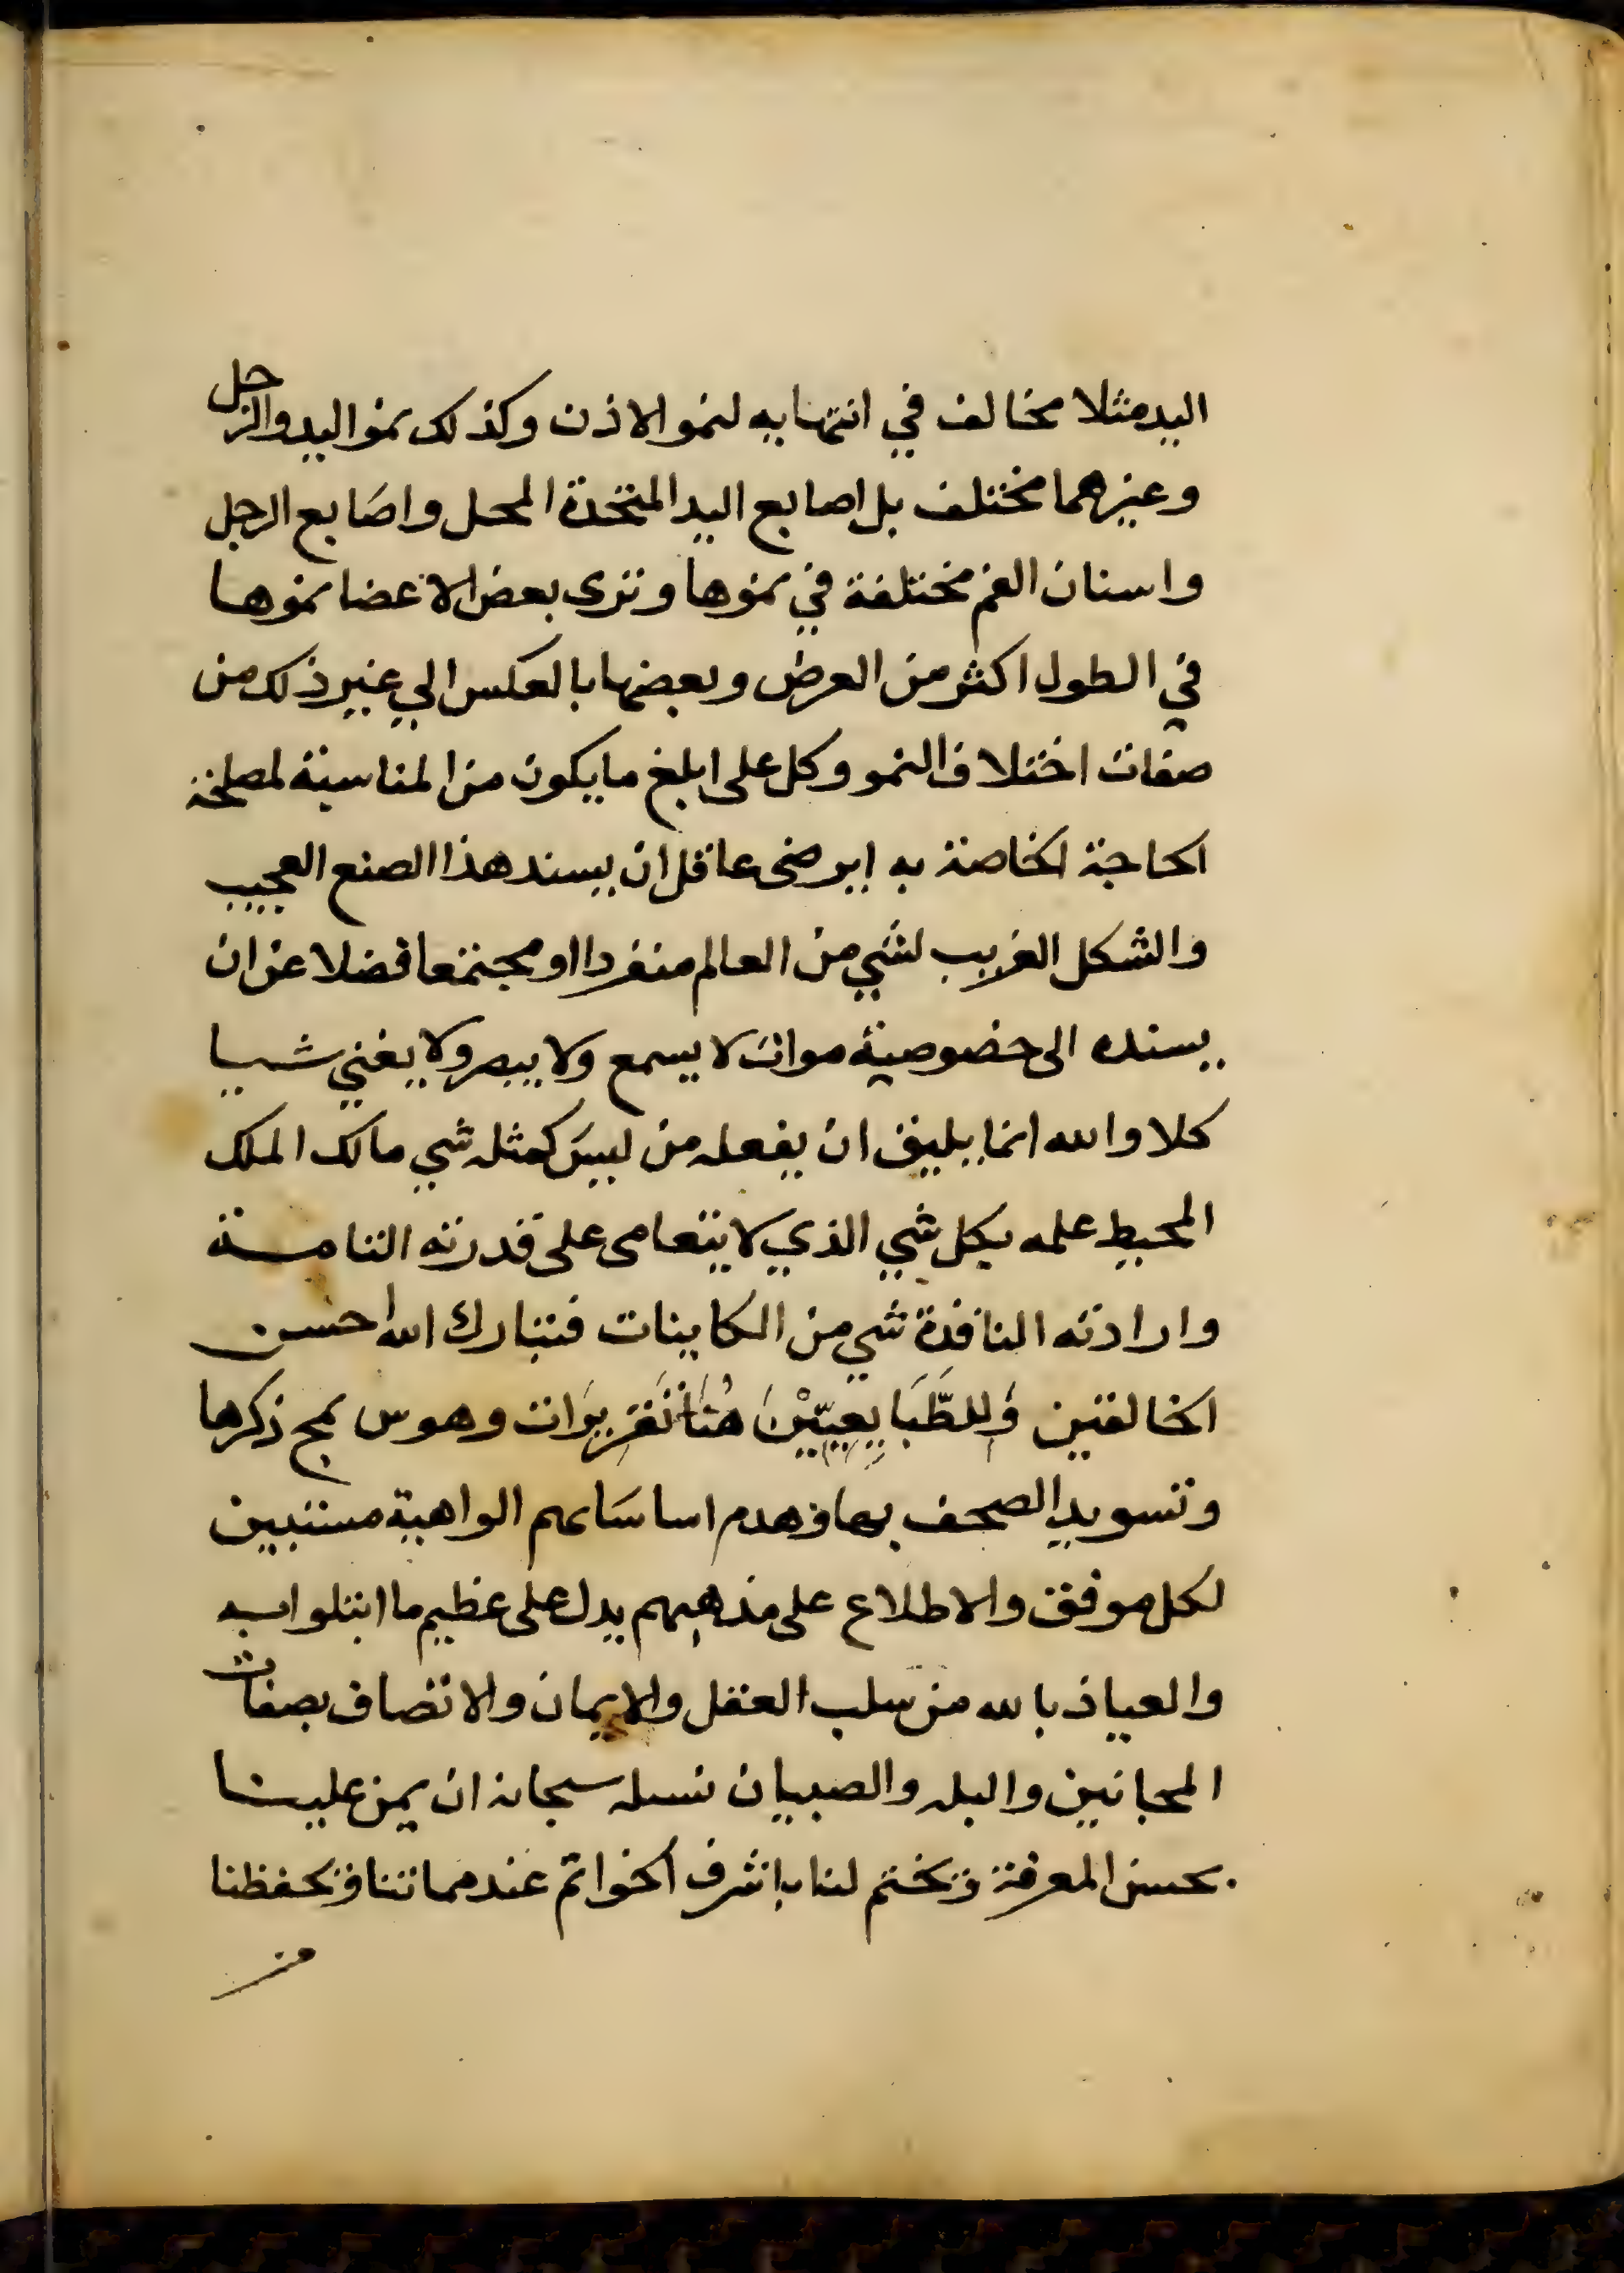 اليد مثلا مخالف في انتهايه لنمو الاذن وكذلك نمو اليد والرجل
وغيرهما مختلف بل اصابع اليد المتحدة المحل واصَابع الرجل
واسنان الفم مختلفة في نموها ونرى بعض الاعضا نموها
في الطول اكثر من العرض وبعضها بالعكس الي غير ذلك من
صفات اختلاف النمو وكل على ابلغ ما يكون من المناسبة لمصلحة
الحاجة الخاصة به ايرضى عاقل ان يسند هذا الصنع العجيب
والشكل الغريب لشي من العالم منفردا او مجتمعا فضلا عن ان
يسنده الى خصوصية موات لا يسمع ولا يبصر ولا يغني شيا
كلا والله انما يليق ان يفعله من ليسَ كمثله شي مالك الملك
المحيط علمه بكل شي الذي لا يتعامى على قدرته التامة
وارادته النافذة شي من الكاينات فتبارك الله احسن
الخالقين وَللطَّبَايعِيّيْنَ هُنَا تَقريرَات وهوس يمج ذكرها
وتسويد الصحف بها وهدم اساسَاتهم الواهية مستبين
لكل موفق والاطلاع على مذهبهم يدل على عظيم ما ابتلوا به
والعياذ بالله من سلب العقل والايمان والاتصاف بصفات
المجانين والبله والصبيان نسله سبحانه ان يمن علينا
بحسن المعرفة ويختم لنا باشرف الخواتم عند مماتنا ويحفظنا
من